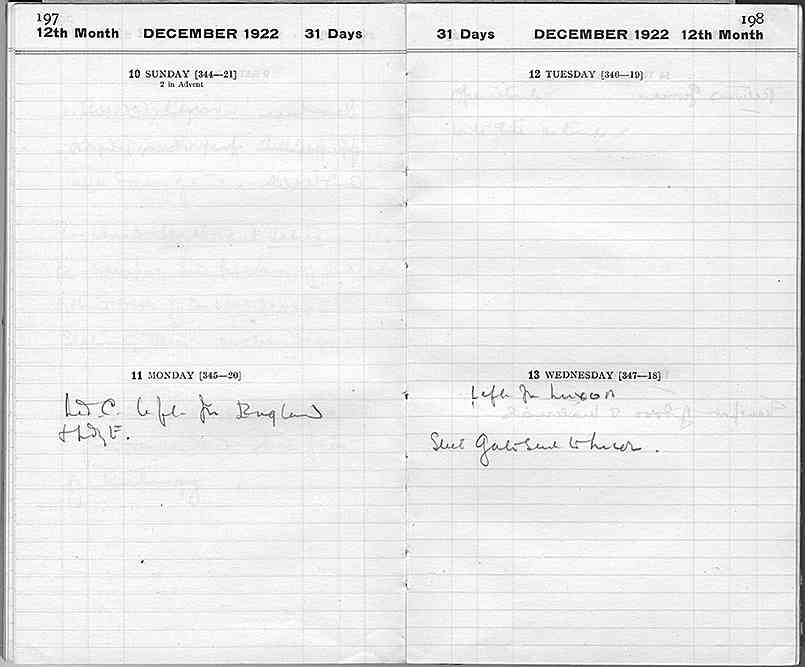 197
12th Month DECEMBER 1922 31 Days
10 SUNDAY [344—21]
2 in Advent
11 MONDAY [345—20]
Ld. C. left for England
& Ldy E.
198
31 Days DECEMBER 1922 12th Month
12 TUESDAY [346—19]
13 WEDNESDAY [347—18]
Left for Luxor
Steel Gate sent to Luxor.